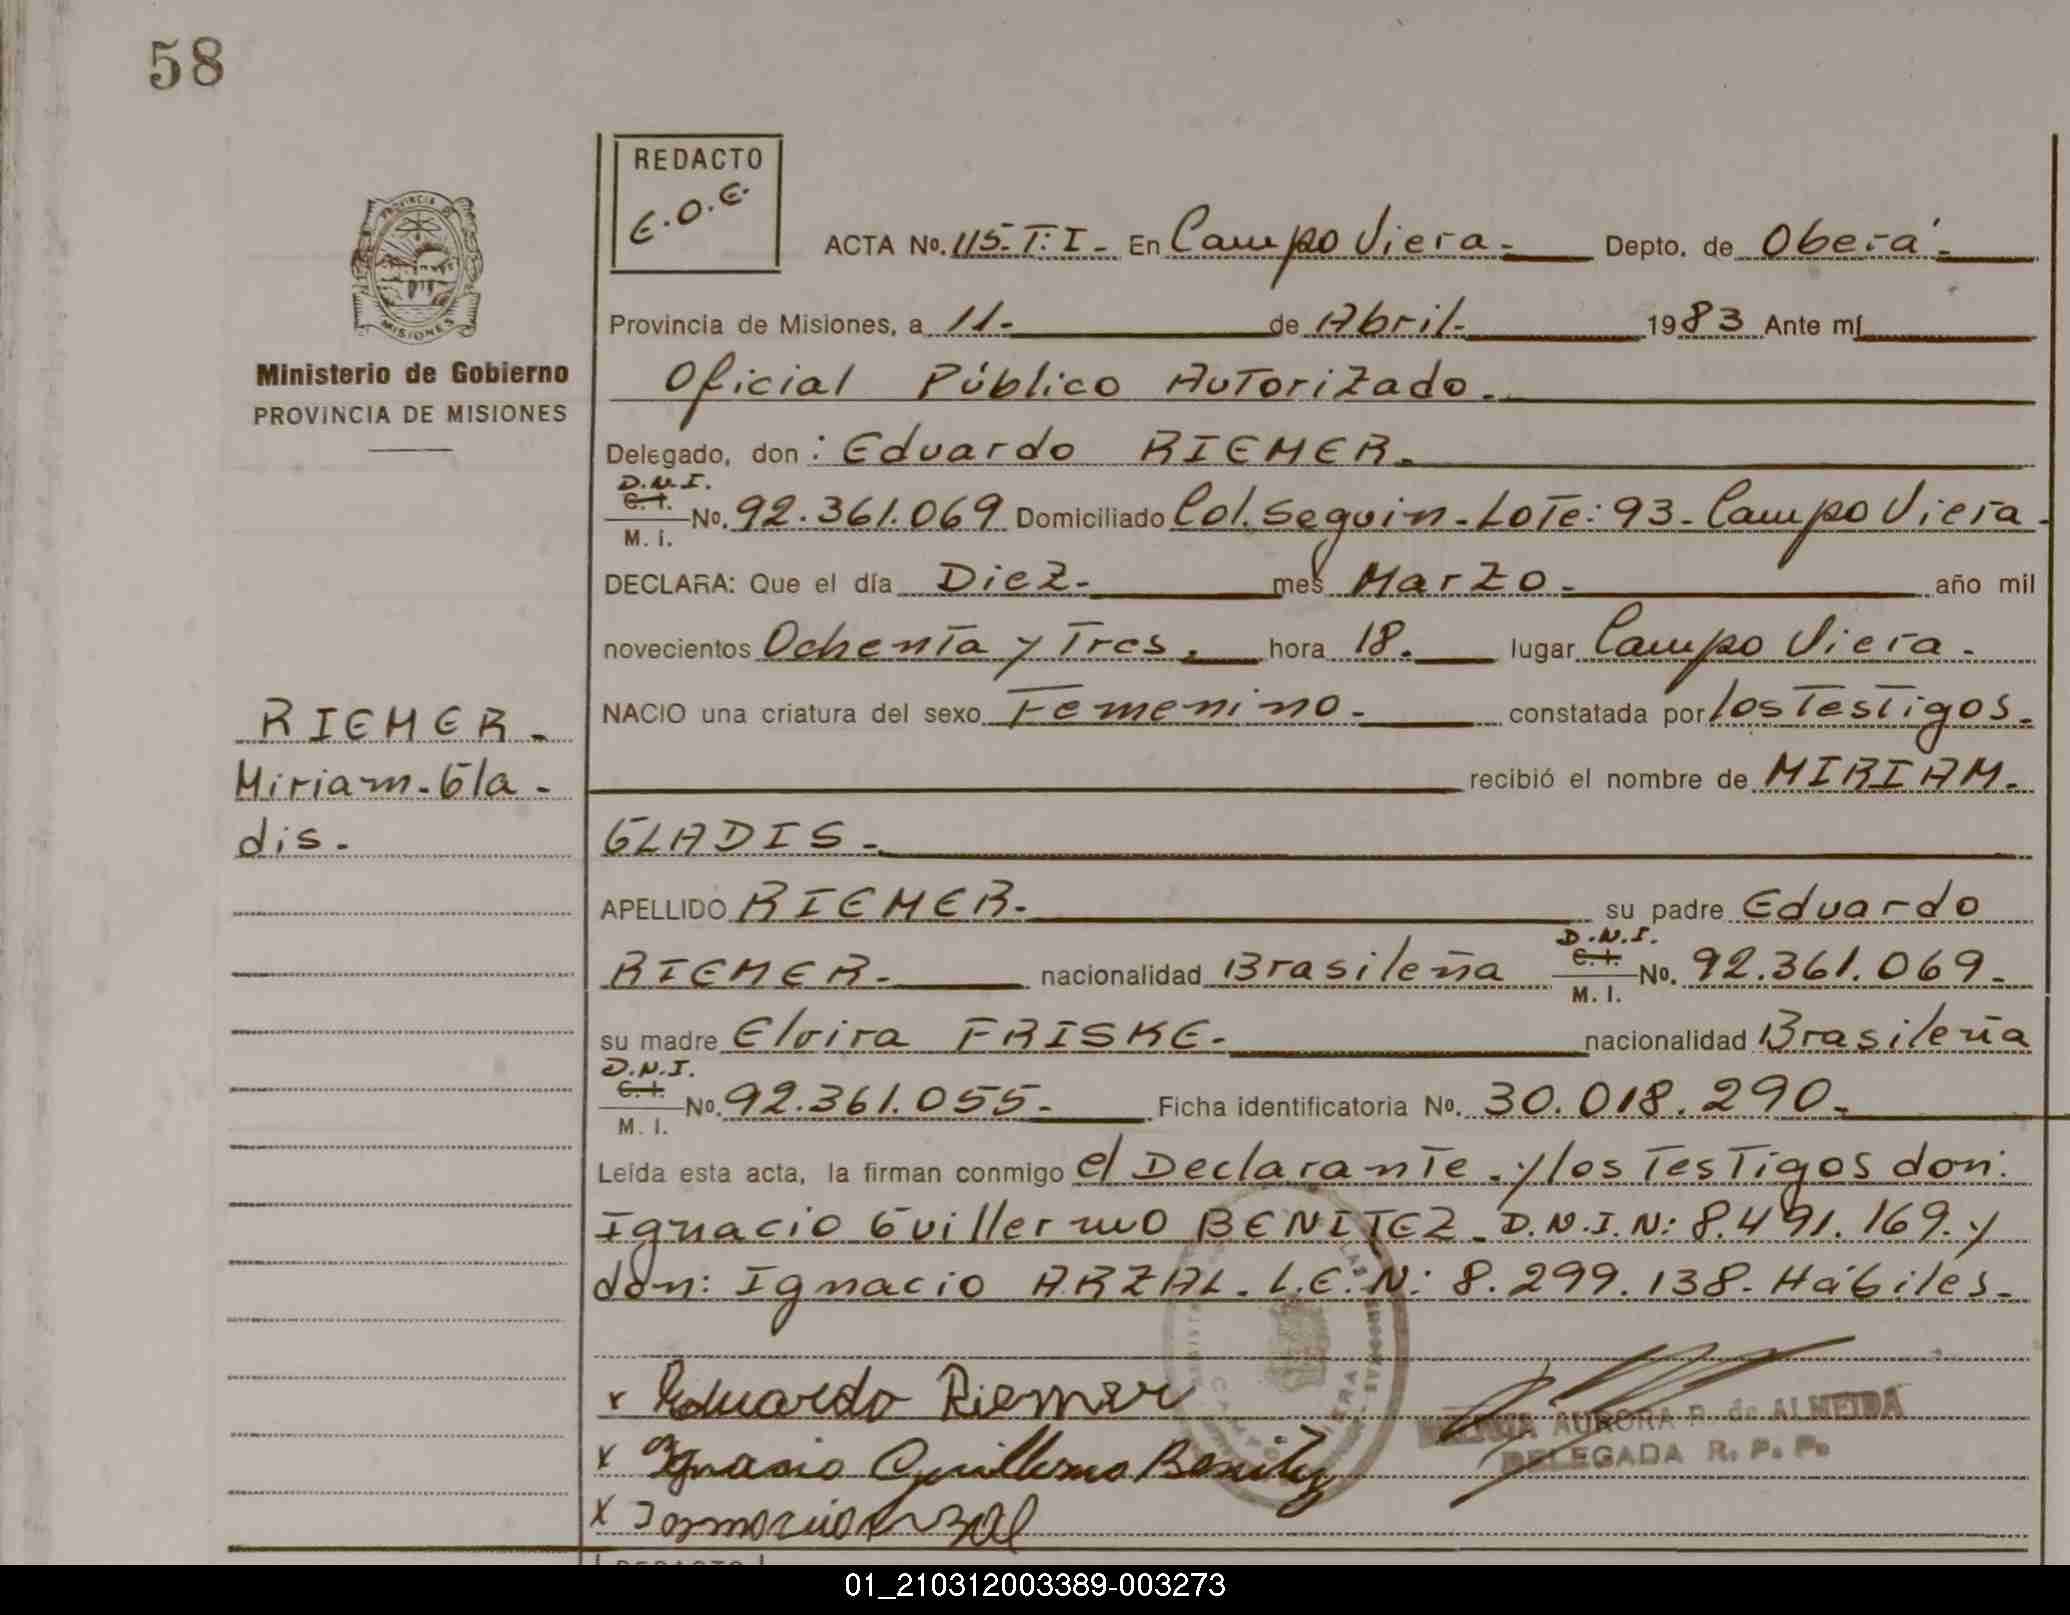 58
REDACTO
E.O.E.
PROVINCIA DE
MISIONES
Ministerio de Gobierno
PROVINCIA DE MISIONES
ACTA No. 115-T:I- En Campo Viera.- Depto. de Oberá.-
Provincia de Misiones, a 11.- de Abril.- 1983 Ante mí
Oficial Público Autorizado.-
Delegado, don: Eduardo RIEMER.-
D.N.I.
C.I.
No. 92.361.069 Domiciliado Col. Seguin-Lote: 93-Campo Viera-
M. I.
DECLARA: Que el día Diez.- mes Marzo.- año mil
novecientos Ochenta y Tres.- hora 18.- lugar Campo Viera.-
NACIO una criatura del sexo Femenino.- constatada por los Testigos.-
recibió el nombre de MIRIAM.-
GLADIS.-
APELLIDO RIEMER.- su padre Eduardo
D.N.I.
C.I.
RIEMER.- nacionalidad Brasileña No. 92.361.069.-
M. I.
su madre Elvira FRISKE.- nacionalidad Brasileña
D.N.I.
C.I.
No. 92.361.055.- Ficha identificatoria No. 30.018.290.-
M. I.
Leída esta acta, la firman conmigo el Declarante.y los Testigos don:
Ignacio Guillermo BENITEZ-D.N.I.N: 8.491.169.y
don: Ignacio ARZAL.L.E.N: 8.299.138-Hábiles.-
RIEMER.-
Miriam-Gla-
dis.-
x Eduardo Riemer
x Ignacio Guillermo Benitez
x Ignacio Arzal
AURORA R. de ALMEIDA
DELEGADA R. P. P.
REDACTO
01_210312003389-003273